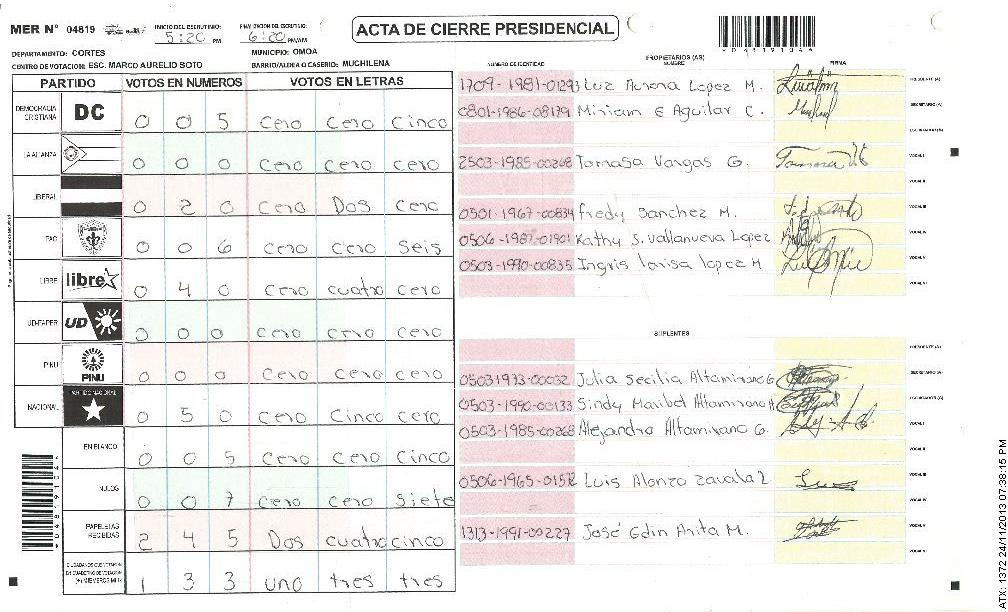 MER Nº 04819
INICIO DEL ESCRUTINIO: 5:20 PM
FINALIZACION DEL ESCRUTINIO: 6:20 PM/AM
ACTA DE CIERRE PRESIDENCIAL
DEPARTAMENTO: CORTES
MUNICIPIO: OMOA
CENTRO DE VOTACION: ESC. MARCO AURELIO SOTO
BARRIO/ALDEA O CASERIO: MUCHILENA
PARTIDO VOTOS EN NUMEROS VOTOS EN LETRAS
DEMOCRACIA CRISTIANA DC 0 0 5 Cero Cero Cinco
LA ALIANZA 0 0 0 Cero Cero Cero
LIBERAL 0 2 0 Cero Dos Cero
PAC 0 0 6 Cero Cero Seis
LIBRE libre 0 4 0 Cero cuatro cero
UD-FAPER UD 0 0 0 Cero Cero Cero
PINU PINU 0 0 0 Cero Cero Cero
NACIONAL PARTIDO NACIONAL 0 5 0 Cero Cinco Cero
EN BLANCO 0 0 5 Cero Cero Cinco
NULOS 0 0 7 Cero Cero Siete
PAPELETAS RECIBIDAS 2 4 5 Dos cuatro cinco
1 3 3 uno tres tres
PROPIETARIOS (AS)
NUMERO DE IDENTIDAD NOMBRE FIRMA
1709-1981-01293 Luz Aurora Lopez M. PRESIDENTE (A)
0801-1986-08179 Miriam E Aguilar C. SECRETARIO (A)
ESCRUTADOR (A)
2503-1985-00268 Tomasa Vargas G. VOCAL I
VOCAL II
0501-1967-00834 Fredy Sanchez M. VOCAL III
0506-1987-01901 Kathy S. Vallanueva Lopez VOCAL IV
0503-1990-00835 Ingris larisa lopez M VOCAL V
VOCAL VI
SUPLENTES
PRESIDENTE (A)
05031973-00032 Julia Secilia Altamirano G SECRETARIO (A)
0503-1990-00133 Sindy Maribel Altamirano H ESCRUTADOR (A)
0503-1985-00268 Alejandro Altamirano G. VOCAL I
VOCAL II
0506-1965-01572 Luis Alonzo Zavala L VOCAL III
VOCAL IV
1313-1991-00227 José Edin Anita M. VOCAL V
VOCAL VI
ATX: 1372 24/11/2013 07:38:15 PM